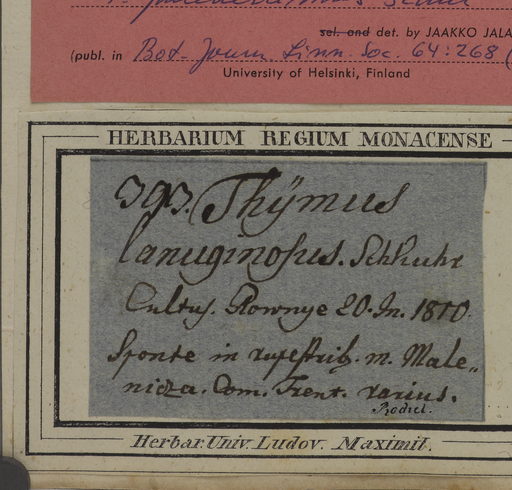 sel. and det. by JAAKKO JALA
(publ. in Bot. Journ. Linn. Soc. 64: 268 (
University of Helsinki, Finland
HERBARIUM REGIUM MONACENSE
393. Thÿmus
lanuginosus. Schkuhr
Cultus. Rownye 20. Jn. 1810.
Sponte in rupestrib. m. Male„
nicza. Com. Trent. rarius.
Rochel.
Herbar. Univ. Ludov. Maximil.